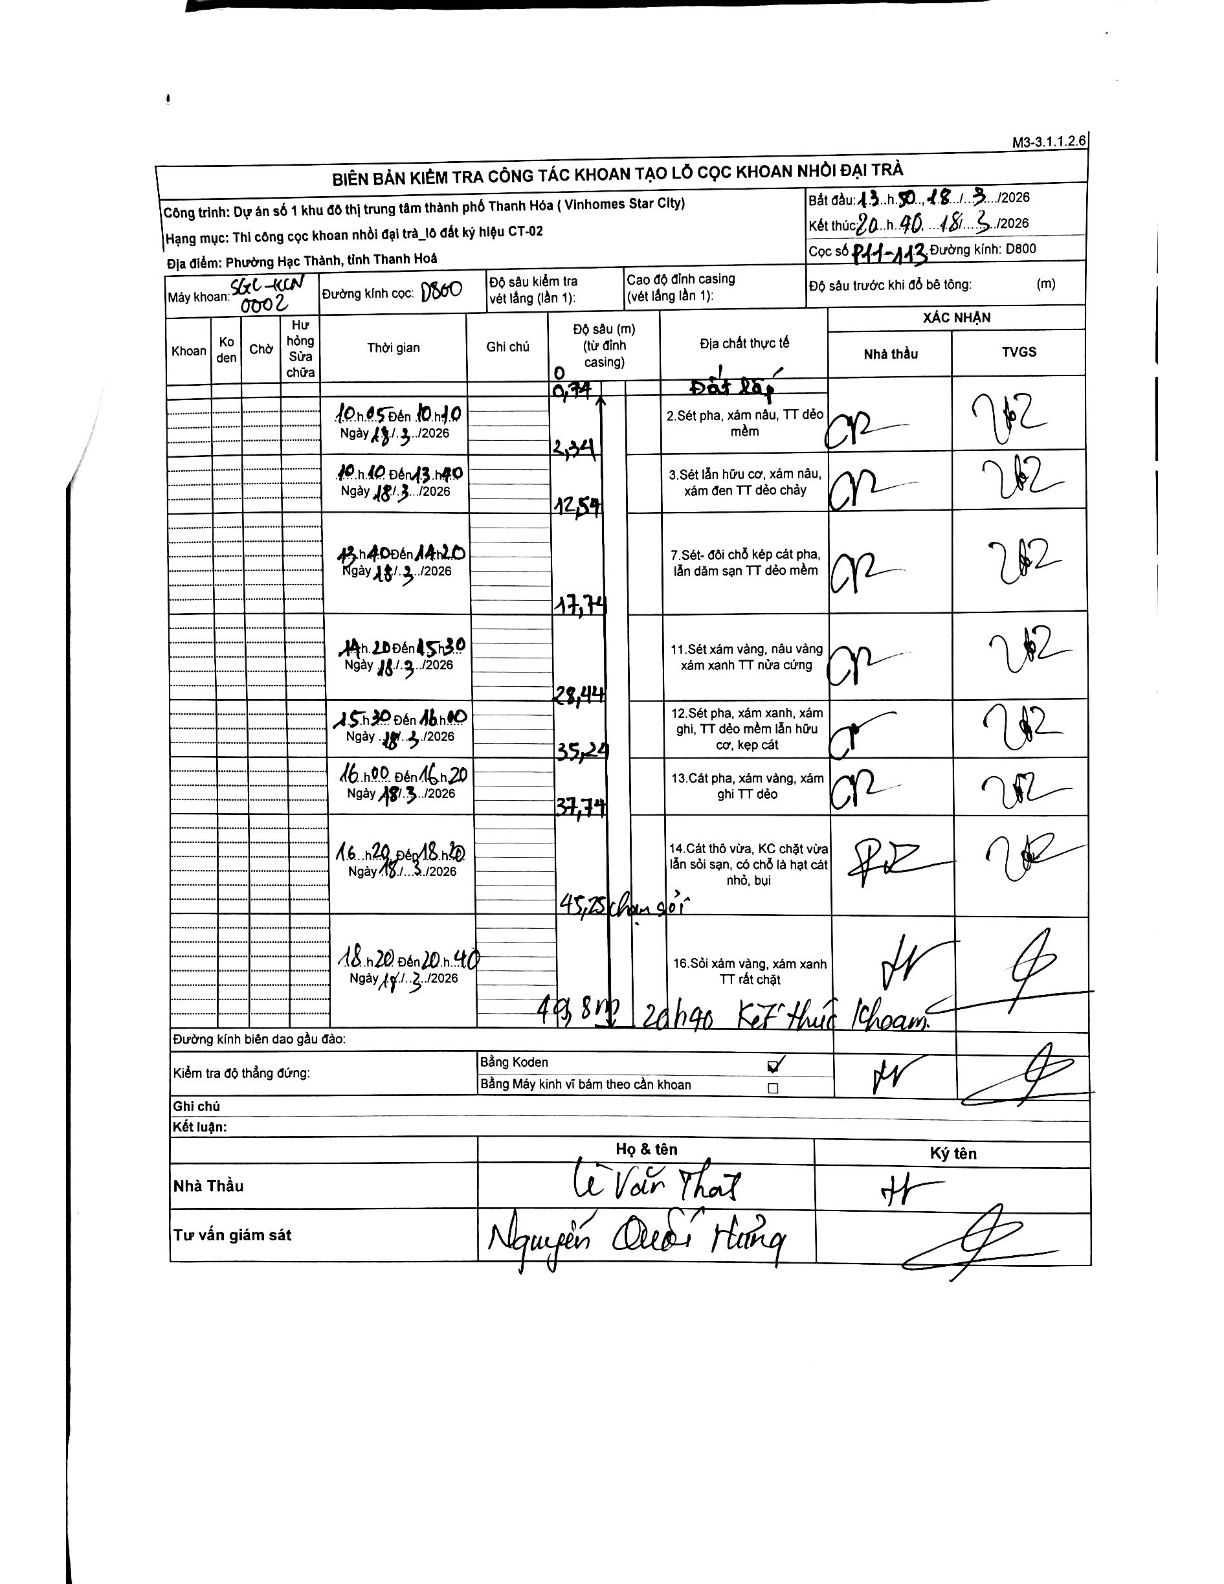 M3-3.1.1.2.6
BIÊN BẢN KIỂM TRA CÔNG TÁC KHOAN TẠO LỖ CỌC KHOAN NHỒI ĐẠI TRÀ
Công trình: Dự án số 1 khu đô thị trung tâm thành phố Thanh Hóa ( Vinhomes Star City)
Hạng mục: Thi công cọc khoan nhồi đại trà_lô đất ký hiệu CT-02
Địa điểm: Phường Hạc Thành, tỉnh Thanh Hoá
Bắt đầu: 13..h.50..,18../..3.../2026
Kết thúc 20..h.40. ...18/...3.../2026
Cọc số P11-113 Đường kính: D800
Máy khoan: SGC-KCN 0002
Đường kính cọc: D800
Độ sâu kiểm tra
vét lắng (lần 1):
Cao độ đỉnh casing
(vét lắng lần 1):
Độ sâu trước khi đổ bê tông: (m)
Khoan
Ko đen
Chờ
Hư hỏng Sửa chữa
Thời gian
Ghi chú
Độ sâu (m)
(từ đỉnh
casing)
Địa chất thực tế
XÁC NHẬN
Nhà thầu
TVGS
0
0,74 Đất lấp
10.h.05 Đến 10.h10
Ngày 18/.3.../2026
2,34
2.Sét pha, xám nâu, TT dẻo
mềm
10.h.10. Đến 13.h40
Ngày 18./.3.../2026
12,54
3.Sét lẫn hữu cơ, xám nâu,
xám đen TT dẻo chảy
13.h40 Đến 14h20
Ngày 18/.3.../2026
17,74
7.Sét- đôi chỗ kép cát pha,
lẫn dăm sạn TT dẻo mềm
14h.20 Đến 15h30
Ngày 18./..3.../2026
28,44
11.Sét xám vàng, nâu vàng
xám xanh TT nửa cứng
15.h30 Đến 16.h00
Ngày ..18/...3.../2026
35,24
12.Sét pha, xám xanh, xám
ghi, TT dẻo mềm lẫn hữu
cơ, kẹp cát
16.h00 Đến 16.h20
Ngày 18/.3.../2026
37,74
13.Cát pha, xám vàng, xám
ghi TT dẻo
16..h20. Đến 18.h20
Ngày 18./...3.../2026
45,25 chạm sỏi
14.Cát thô vừa, KC chặt vừa
lẫn sỏi sạn, có chỗ là hạt cát
nhỏ, bụi
18.h20 Đến 20.h.40
Ngày 18/..3.../2026
16.Sỏi xám vàng, xám xanh
TT rất chặt
49,8m 20h40 Kết thúc khoan.
Đường kính biên dao gầu đào:
Kiểm tra độ thẳng đứng:
Bằng Koden ☑
Bằng Máy kinh vĩ bám theo cần khoan ☐
Ghi chú
Kết luận:
Họ & tên
Ký tên
Nhà Thầu
Lê Văn Thật
Tư vấn giám sát
Nguyễn Quốc Hưng